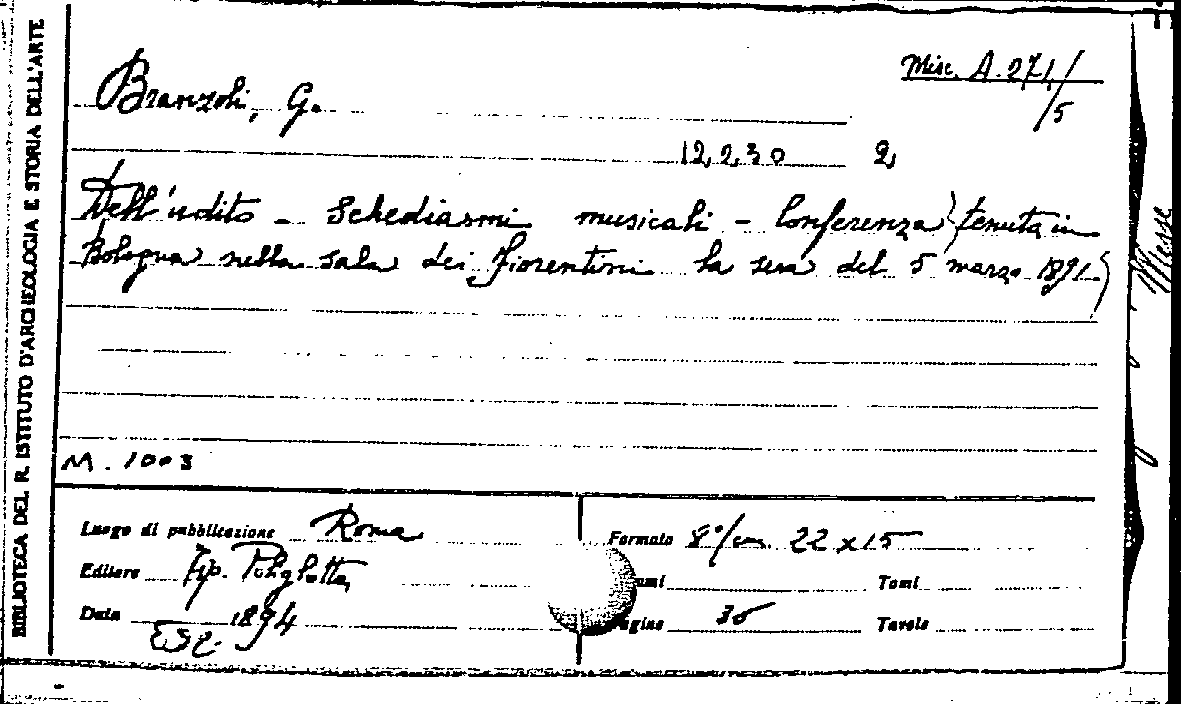 BIBLIOTECA DEL R. ISTITUTO D'ARCHEOLOGIA E STORIA DELL'ARTE
Misc. A. 271/5
Branzoli, G.
12230 2
Dell'udito - Schediasmi musicali - Conferenza (tenuta in
Bologna nella sala dei fiorentini la sera del 5 marzo 1891)
M. 1003
Luogo di pubblicazione Roma
Editore Tip. Poliglotta
Data 1894
Formato 8°/cm. 22 x 15
Tomi
Pagine
Tavole
Messe